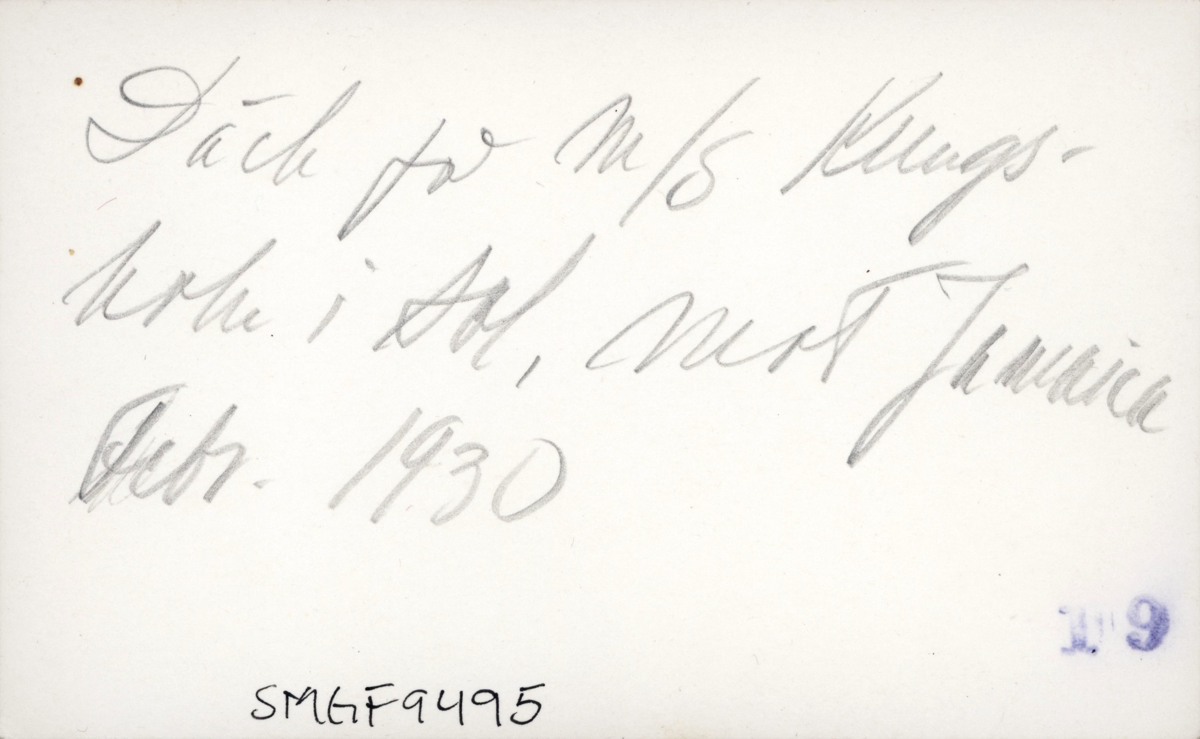 Däck på M/S Kungs-
holm i sol, mot Jamaica
Febr. 1930
19
SMGF9495